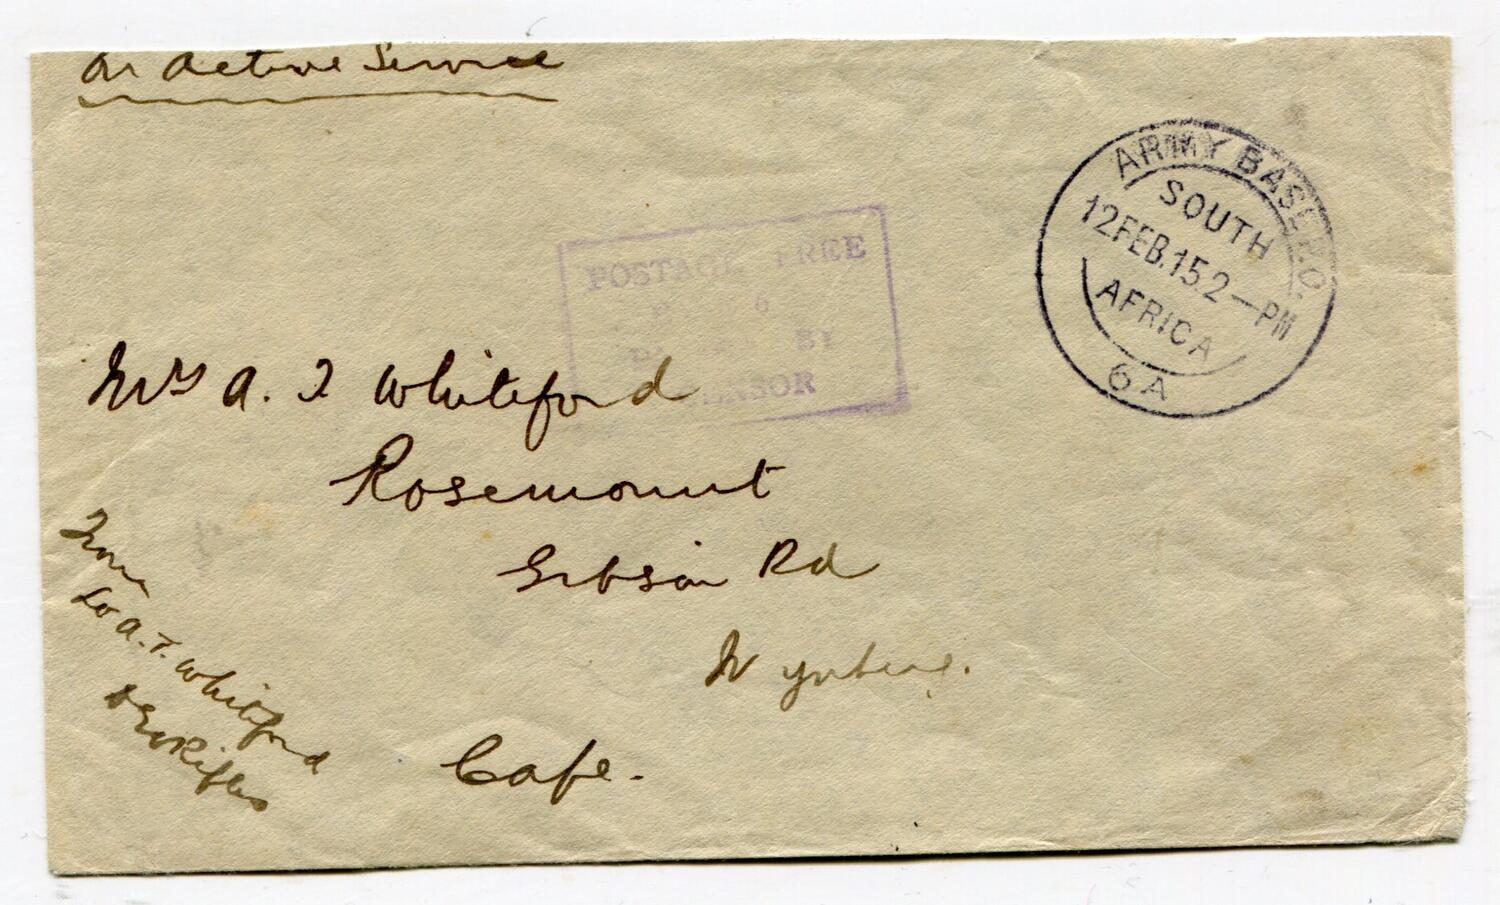 On Active Service
ARMY BASE P.O.
SOUTH
12 FEB.15 2-PM
AFRICA
6A
POSTAGE FREE
BY
CENSOR
Mrs A. T Whiteford
Rosemount
Gibson Rd
Wynberg.
Cape.
From
A. T. Whiteford
Rifles